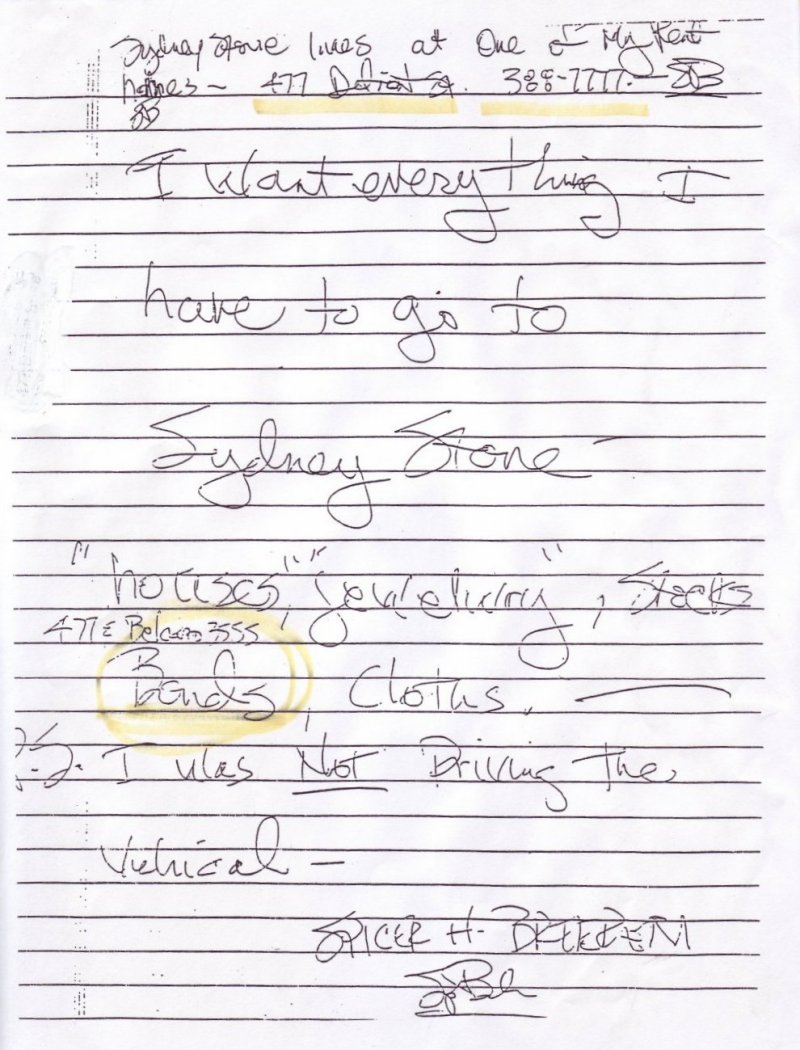 Sydney Stone lives at One of My Rent
homes - 477 388-7777. - SB
SB
I Want everything I
have to go to
Sydney Stone -
"houses", "jewelwry", Stocks
477 E Belcaro 3555
Bonds, Cloths.
P.S. I was Not Driving The
Vehical -
SPICER H. BREEDEN